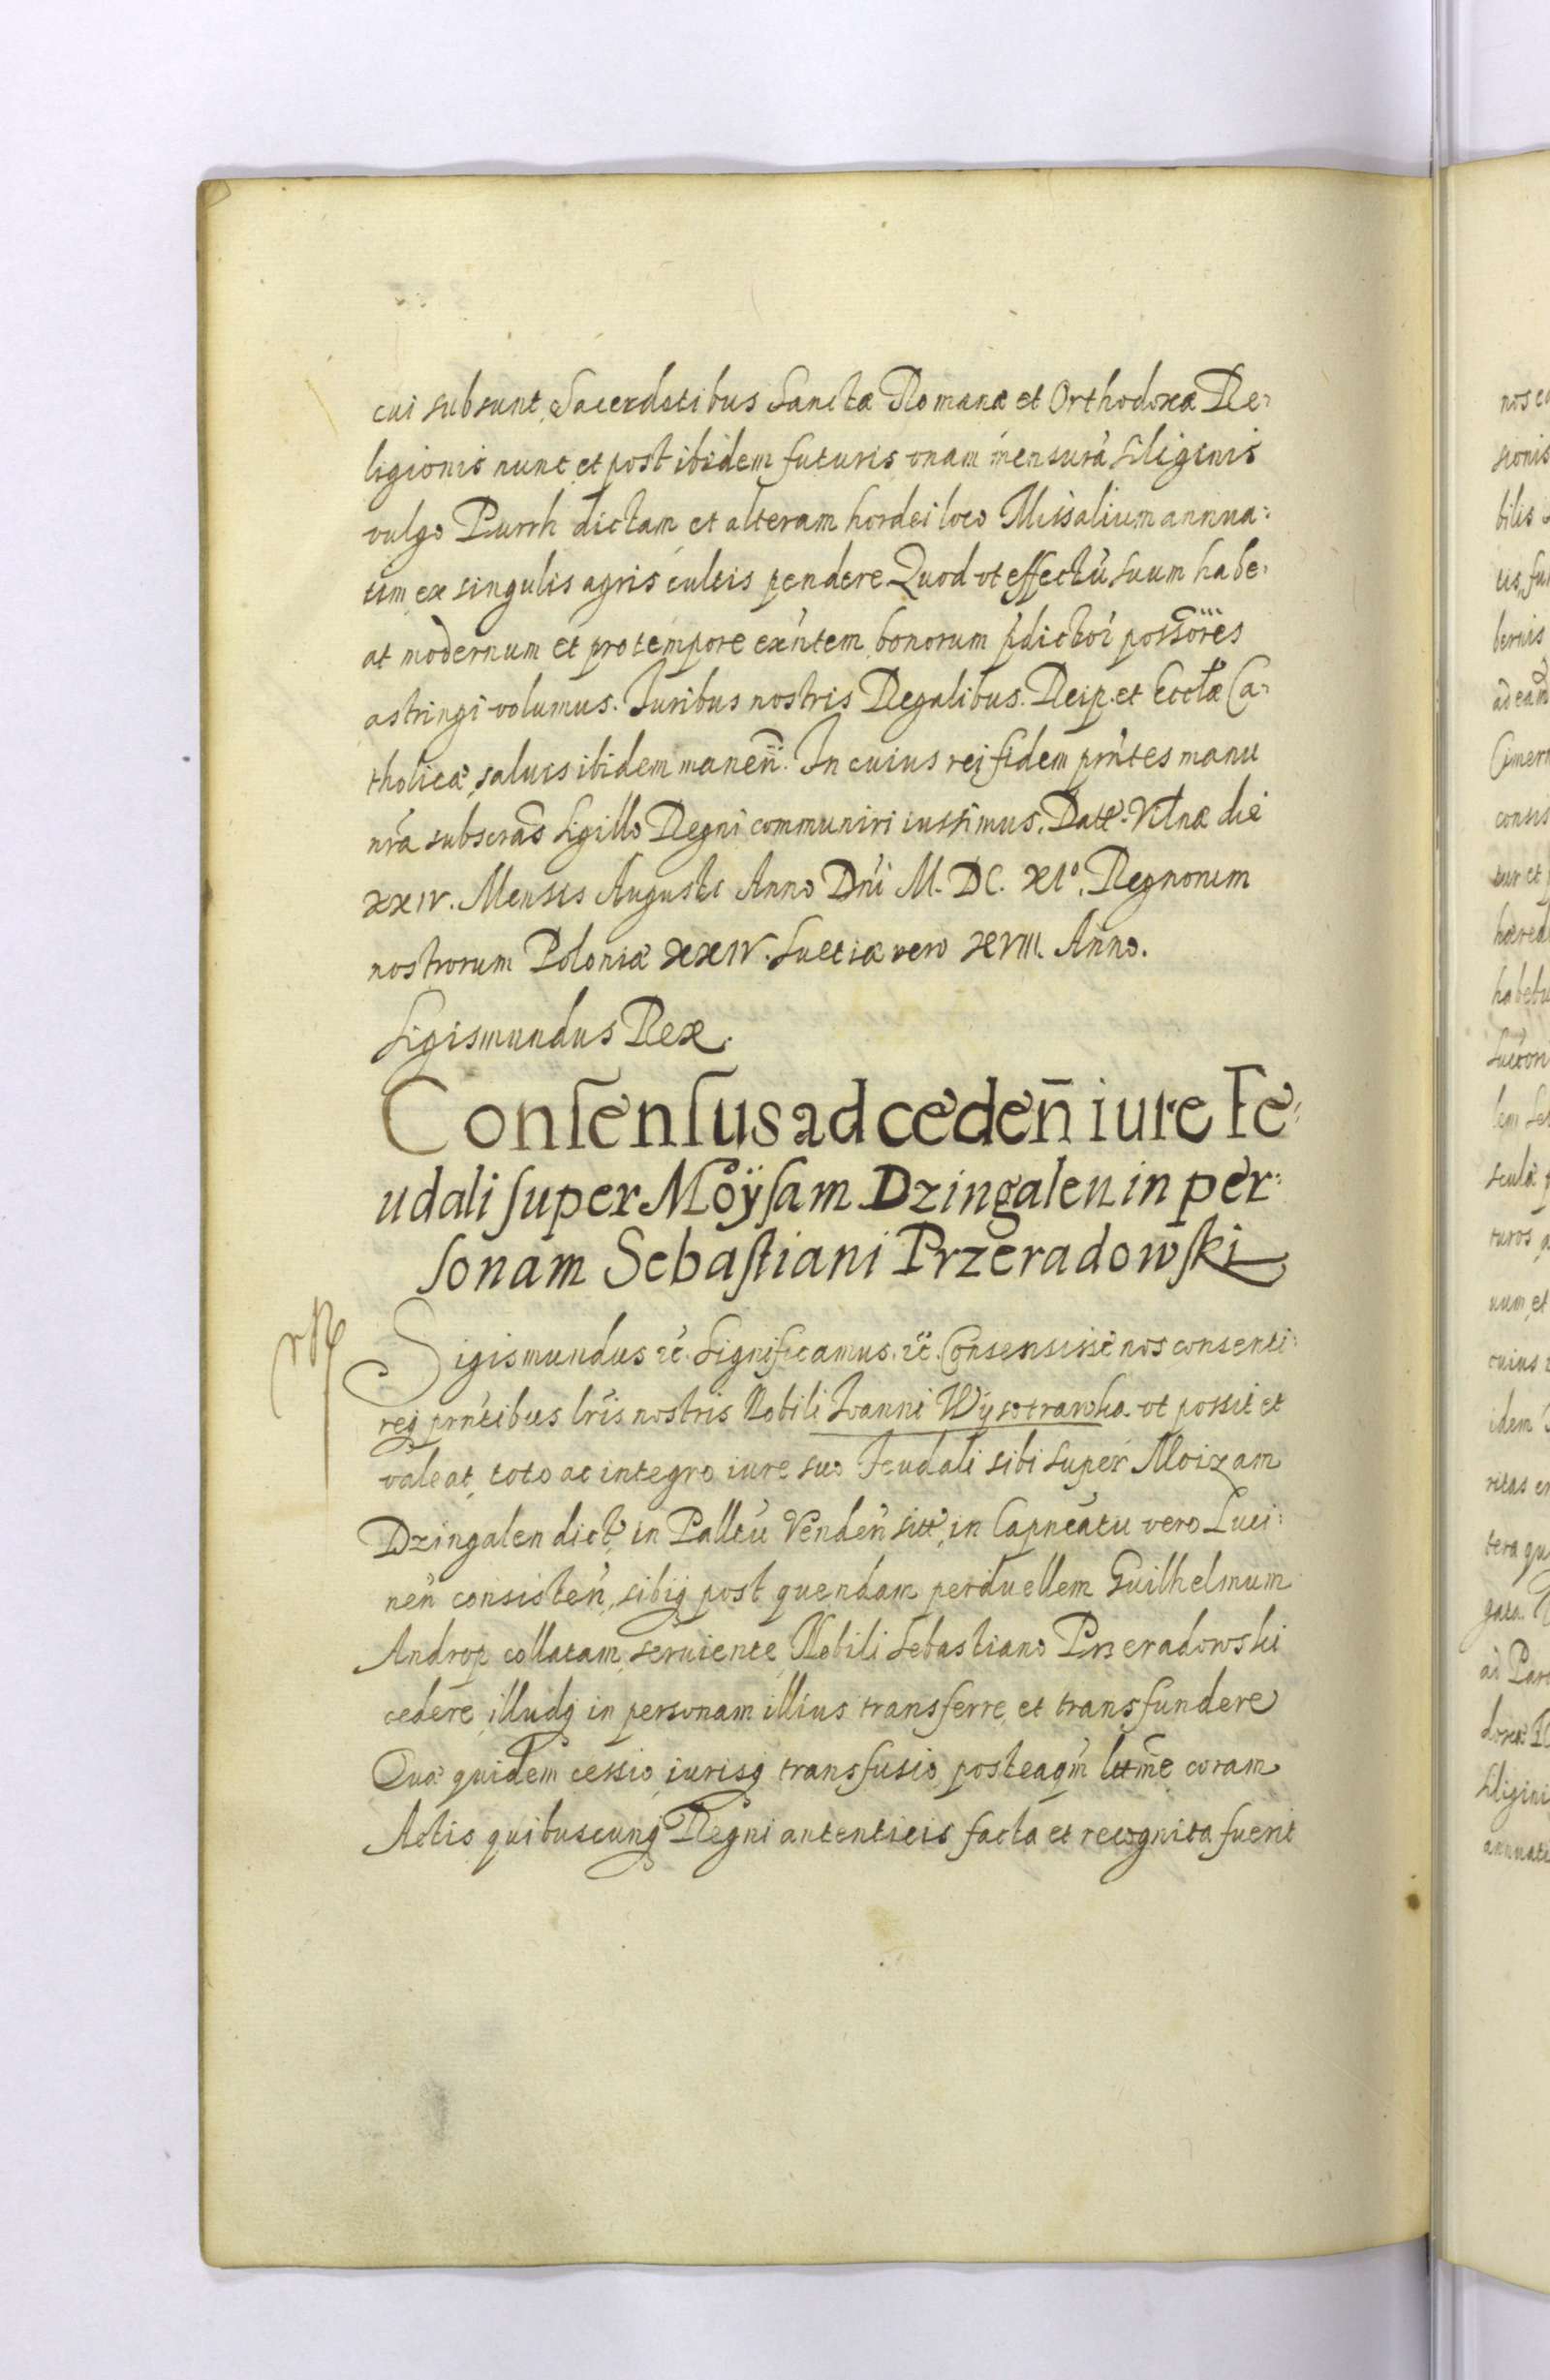 cui subsunt, Sacerdotibus Sanctæ Romanæ et Orthodoxæ Re:
ligionis nunc et post ibidem futuris unam mensurã Siliginis
vulgo Purrh dictam et alteram hordei loco Missalium annua:
tim ex singulis agris cultis pendere Quod ut effectũ suum habe:
at modernum et pro tempore exñtem bonorum pdictor possores
astringi volumus. Juribus nostris Regalibus. Reip. et Eccłæ Ca:
tholicæ, salvis ibidem maneñ. In cuius rei fidem prñtes manu
nrã subscras Sigillo Regni communiri iussimus. Datt. Vilnæ die
XXIV. Mensis Augusti Anno Dñi M. DC. XIº. Regnorum
nostrorum Poloniæ XXIV. Suetiæ vero XVIII. Anno.
Sigismundus Rex.
Consensus ad cedeñ iure Fe:
udali super Moÿsam Dzingalen in per:
sonam Sebastiani Przeradowski
Sigismundus ꝛc. Significamus. ꝛc. Consensisse nos consenti:
req prñtibus lris nostris Nobili Joanni Wysotrawka ut possit et
valeat, toto ac integro iure suo Feudali sibi super Moizam
Dzingalen dict, in Palltu Vendeñ sitt, in Capneatu vero Luci:
neñ consisteñ, sibiq post quendam perduellem Guilhelmum
Androp collatam, serviente, Nobili Sebastiano Przeradowski
cedere, illudq in personam illius transferre, et transfundere
Quæ quidem cessio, iurisq transfusio, posteaqm lttme coram
Actis quibuscunq Regni autenticis facta et recognita fuerit